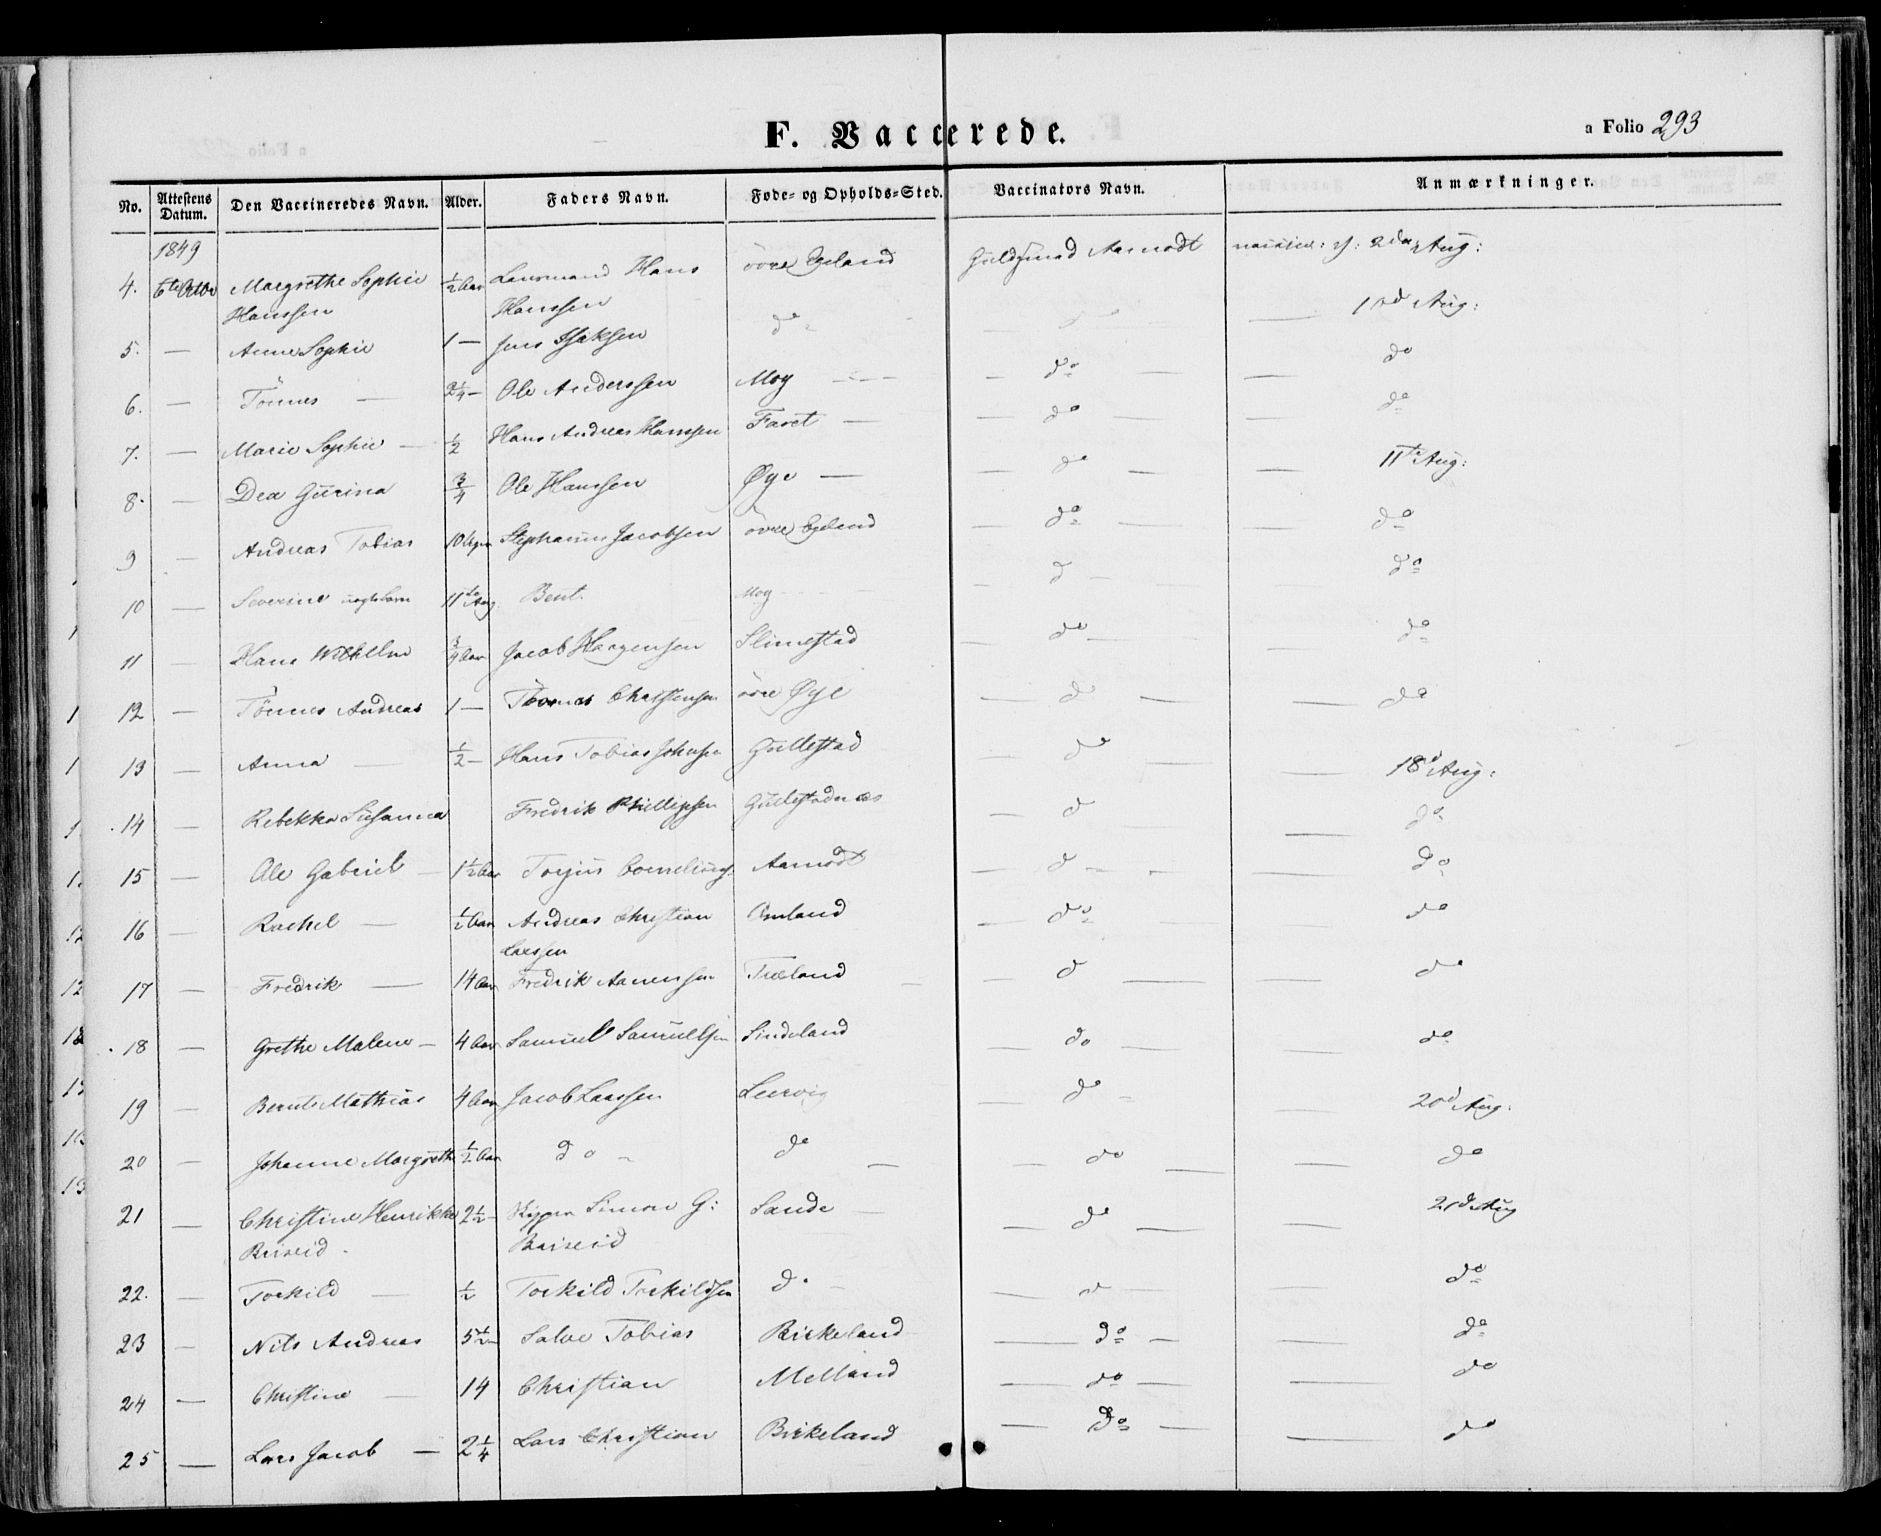 F. Vaccerede.
a Folio 293
No. Attestens Datum. Den Vaccineredes Navn. Alder. Faders Navn. Føde- og Opholds-Sted. Vaccinators Navn. Anmærkninger.
1849
4. Margrethe Sophie ½ Aar Lensmand Hans øvre Egeland Guldsmed Aamodt 2den Aug:
Hanssen Hanssen
5. — Anne Sophie 1 — Jens Isaksen do 1 Aug:
6. — Tönnes — 2¼ — Ole Anderssen Moy — do — do
7. — Marie Sophie — ½ Hans Andreas Hanssen Faret — do — do
8. — Dea Gurina ¾ Ole Hanssen Øye — do — 11te Aug:
9 — Andreas Tobias 10 Stephanus Jacobsen övre Egeland — do — do
10 — Severine 11 Bent. Moy — d — do
11 — Hans Wilhelm ¾ Aar Jacob Slimestad — do — do
12 — Tönnes Andreas 1 — Tönnes Christensen övre Øye — d — do
13 — Anna — ½ — Hans Tobias Johnsen Gullestad — do — 18d Aug:
14 — Rebekka Susanna Fredrik Phillipsen Gullestadnæs — d — do
15 — Ole Gabriel — 1½ Aar Torjus Corneliuss: Aamodt — d — do
16 — Rachel — ½ Aar Andreas Christian Omland — do — do
Larssen
17 — Fredrik — 14 Aar Fredrik Aanenssen Træland — d — do
18 — Grethe Malene — 4 Aar Samuel Samuelsen Sindeland — do — do
19 — Bernt Mathias 4 Aar Jacob Larssen Leervig — do — 20d Aug:
20 — Johanne Margrethe ½ Aar do do — do — do
21 — Christine Henrikke 2½ — Simon G: Sande — do — 21d Aug
Briseid Briseid
22. — Torkild — ½ Torkild Torkildsen d. — d — do
23 — Nils Andreas 5½ — Salve Tobias Birkeland — do — do
24 — Christine — 14 Christian Melland — do — do
25 — Lars Jacob — 2¼ Lars Christian Birkeland — do — do